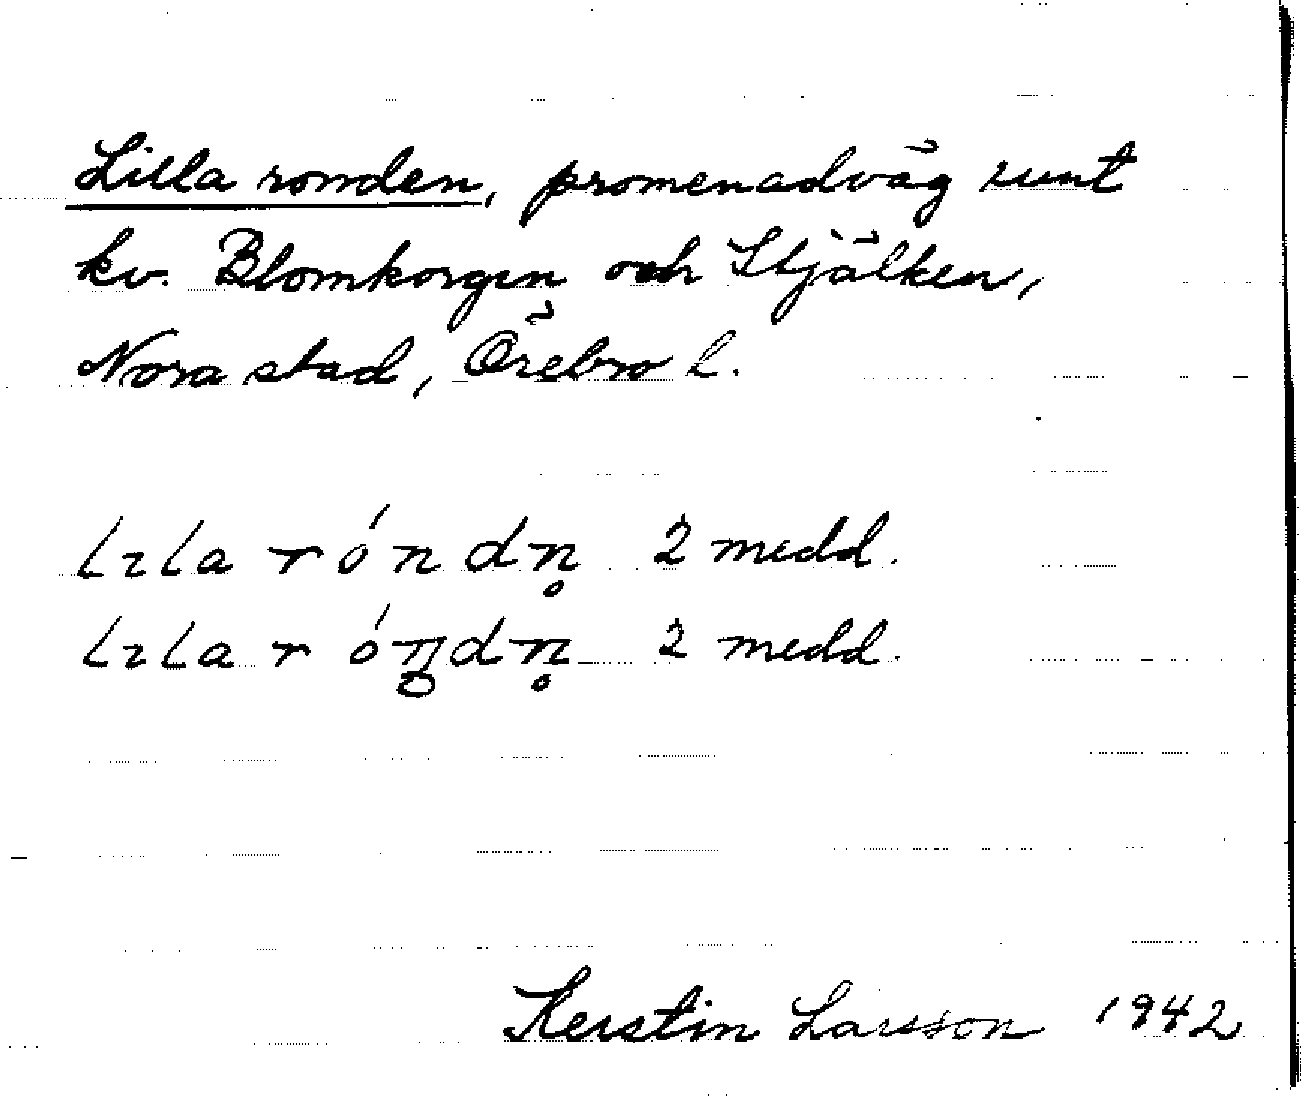 Lilla ronden, promenadväg runt
kv. Blomkorgen och Stjälken,
Nora stad, Örebro l.
lɩla róndn̥ 2 medd.
lɩla róŋdn̥ 2 medd.
Kerstin Larsson 1942